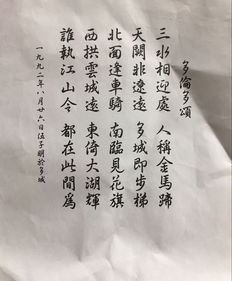 多倫多頌
三水相迎處 人稱金馬蹄
天闕非遼遠 多城即步梯
北面逢車騎 南臨見花旗
西拱雲城遠 東倚大湖輝
誰執江山令 都在此間為
一九九二年八月廿六日伍子明於多城